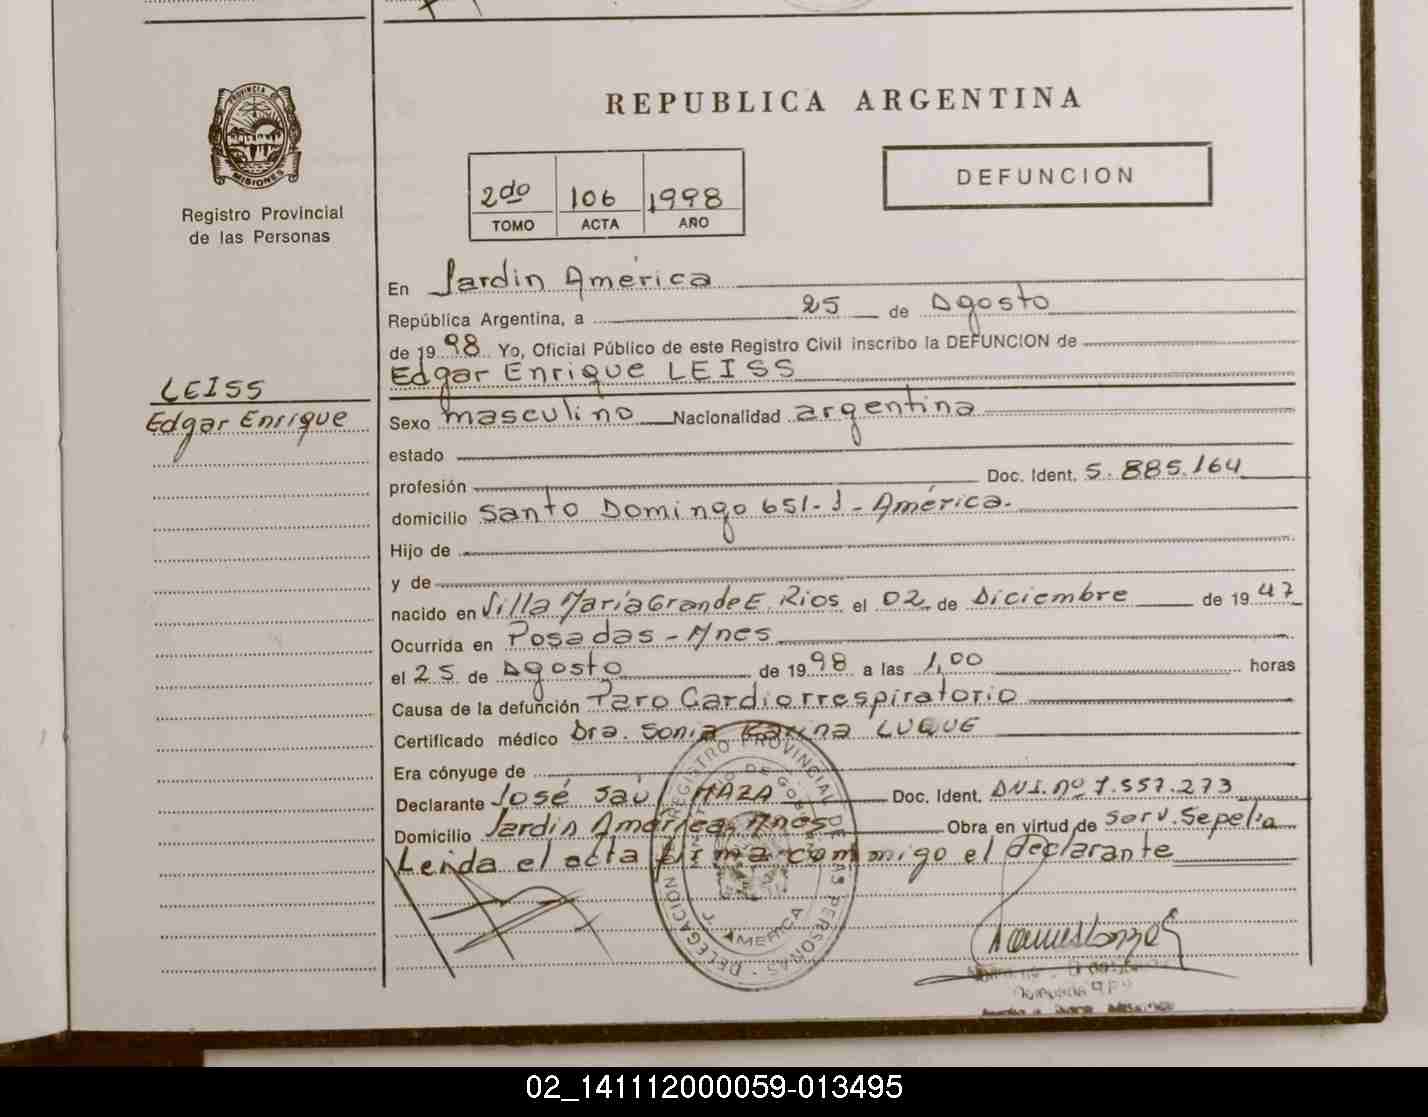 PROVINCIA DE
MISIONES
Registro Provincial
de las Personas
REPUBLICA ARGENTINA
2do 106 1998
TOMO ACTA AÑO
DEFUNCION
En Jardin América
República Argentina, a 25 de Agosto
de 19 98 Yo, Oficial Público de este Registro Civil inscribo la DEFUNCION de
Edgar Enrique LEISS
LEISS
Edgar Enrique
Sexo masculino Nacionalidad argentina
estado
profesión Doc. Ident. 5.885.164
domicilio Santo Domingo 651-J-América.
Hijo de
y de
nacido en Villa María Grande E. Rios el 02 de Diciembre de 19 47
Ocurrida en Posadas - Mnes
el 25 de Agosto de 19 98 a las 1,00 horas
Causa de la defunción Paro Cardiorrespiratorio
Certificado médico Dra. Sonia Karina LUQUE
Era cónyuge de
Declarante José Saúl MAZA Doc. Ident. DNI. nº 7.557.273
Domicilio Jardin América, Mnes Obra en virtud de Serv. Sepelio
Leida el acta firma conmigo el declarante
REGISTRO PROVINCIAL DE LAS PERSONAS - DELEGACION
MINISTERIO DE GOBIERNO
J. AMERICA
02_141112000059-013495